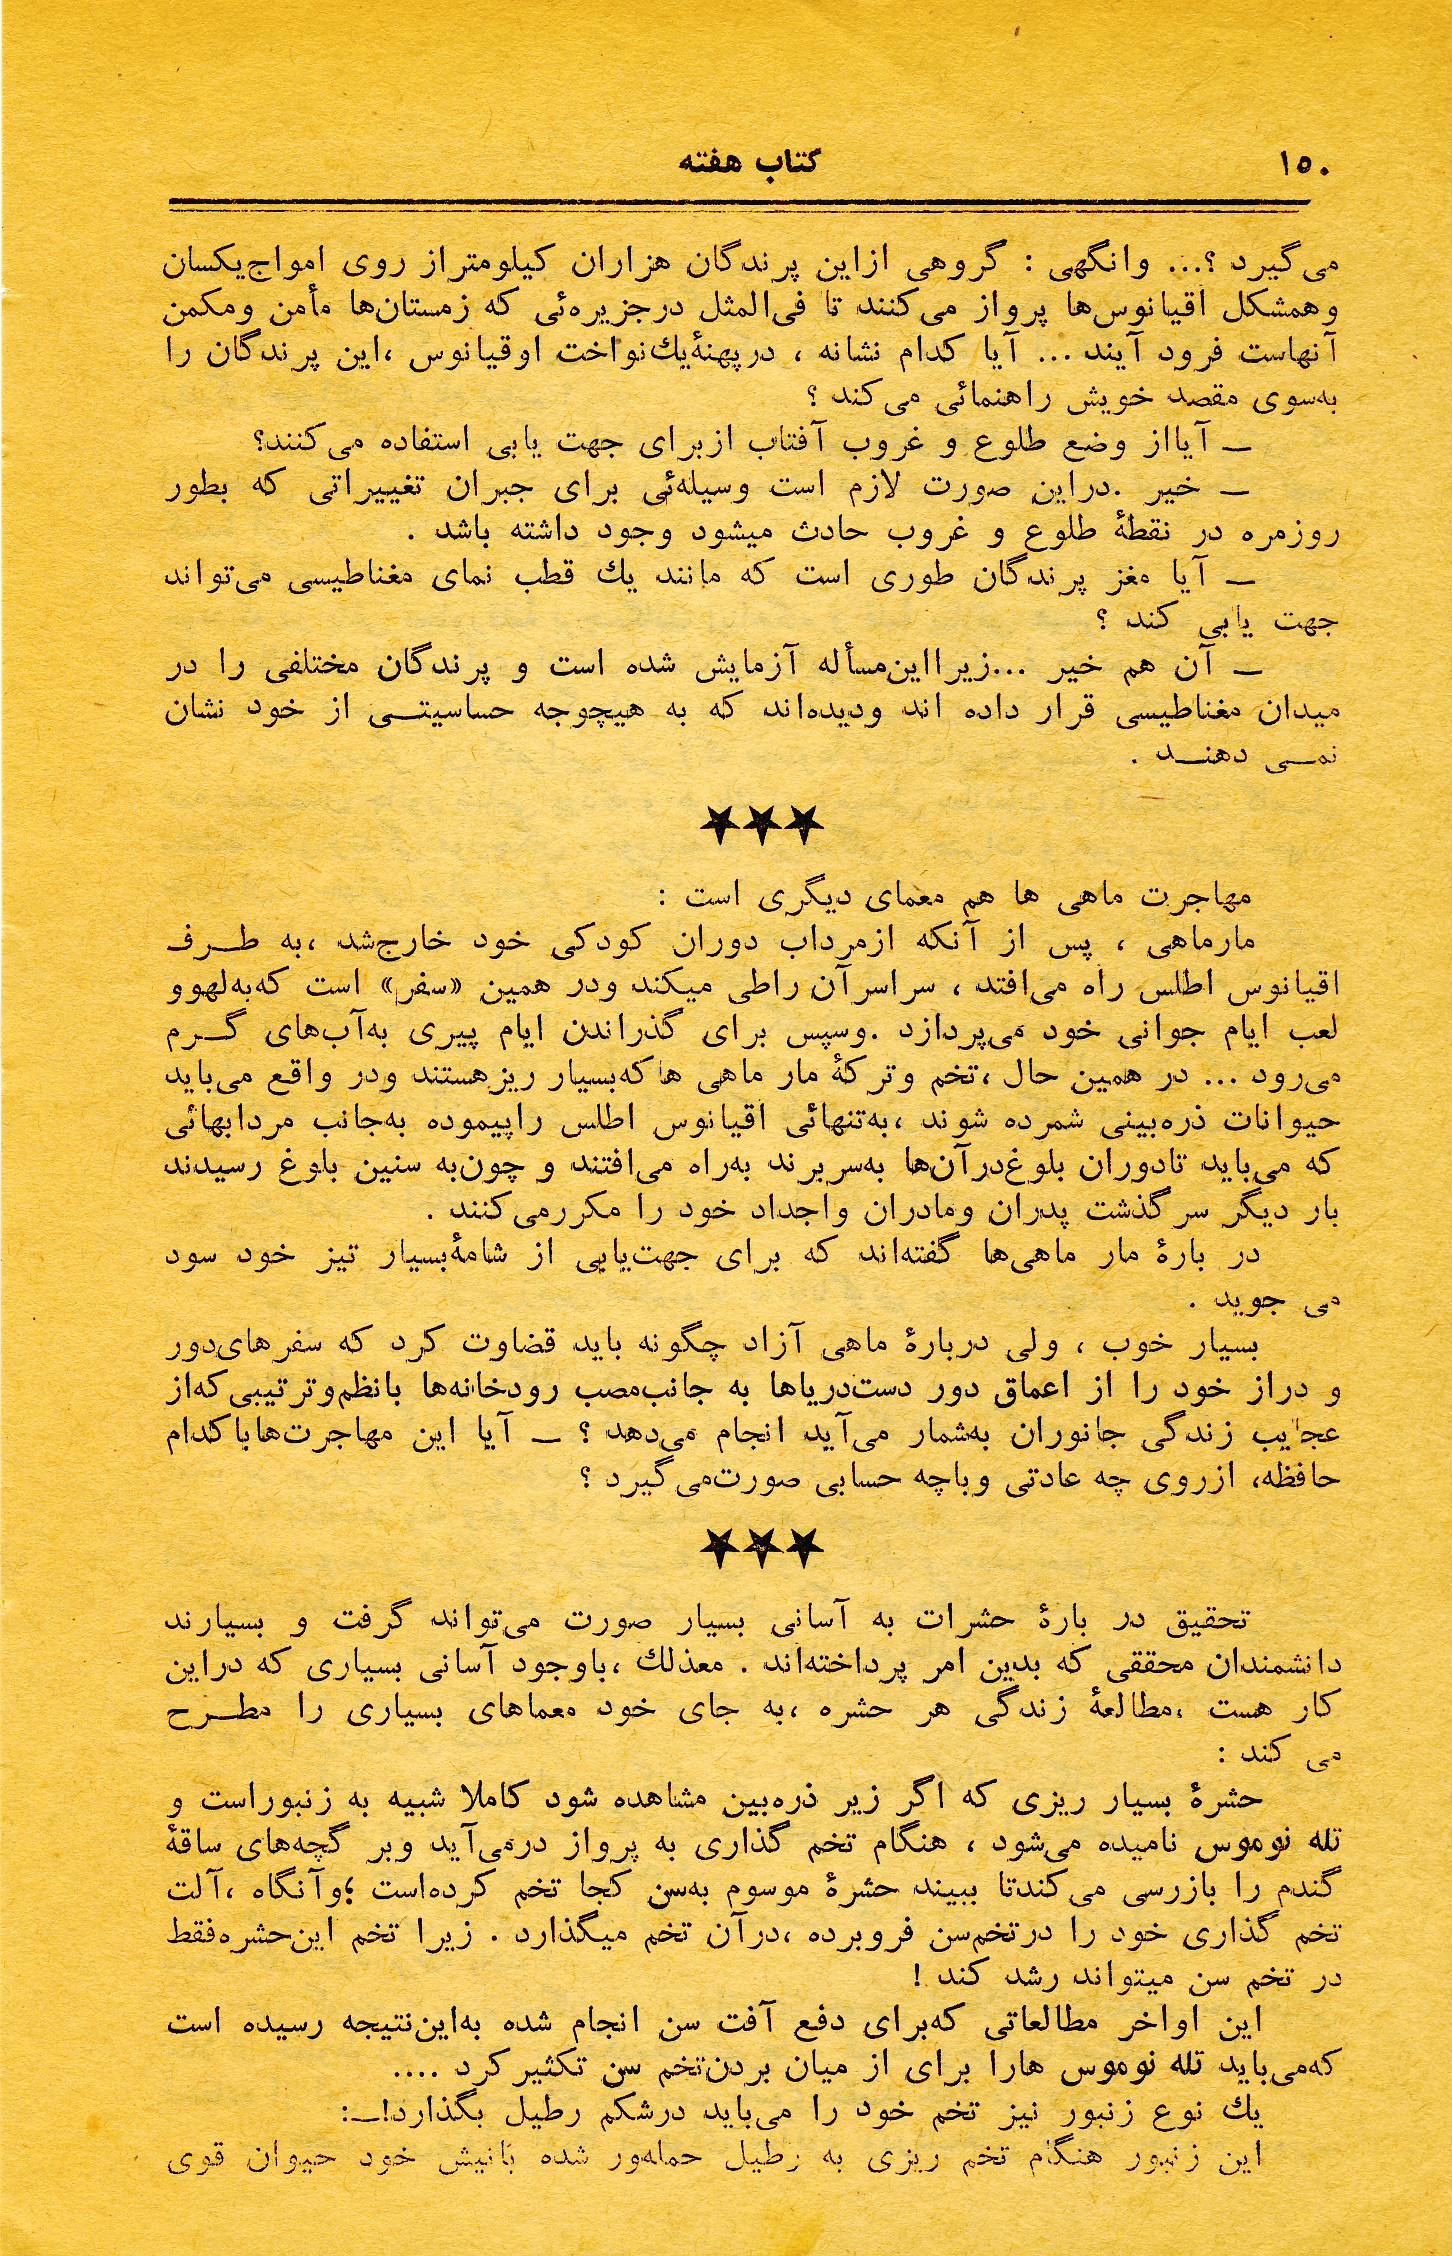 ۱۵۰
کتاب هفته
می‌گیرد ؟... وانگهی : گروهی ازاین پرندگان هزاران کیلومتراز روی امواج‌یکسان
وهمشکل اقیانوس‌ها پرواز می‌کنند تا فی‌المثل درجزیره‌ئی که زمستان‌ها مأمن ومکمن
آنهاست فرود آیند ... آیا کدام نشانه ، درپهنهٔ‌یك‌نواخت اوقیانوس ،این پرندگان را
به‌سوی مقصد خویش راهنمائی می‌کند ؟
ـ آیااز وضع طلوع و غروب آفتاب ازبرای جهت یابی استفاده می‌کنند؟
ـ خیر .دراین صورت لازم است وسیله‌ئی برای جبران تغییراتی که بطور
روزمره در نقطهٔ طلوع و غروب حادث میشود وجود داشته باشد .
ـ آیا مغز پرندگان طوری است که مانند یك قطب نمای مغناطیسی می‌تواند
جهت یابی کند ؟
ـ آن هم خیر ...زیرااین‌مسأله آزمایش شده است و پرندگان مختلفی را در
میدان مغناطیسی قرار داده اند ودیده‌اند که به هیچوجه حساسیتـــی از خود نشان
نمـــی دهنـــد .
★★★
مهاجرت ماهی ها هم معمای دیگری است :
مارماهی ، پس از آنکه ازمرداب دوران کودکی خود خارج‌شد ،به طـــرف
اقیانوس اطلس راه می‌افتد ، سراسرآن راطی میکند ودر همین «سفر» است که‌به‌لهوو
لعب ایام جوانی خود می‌پردازد .وسپس برای گذراندن ایام پیری به‌آب‌های گـــرم
می‌رود ... در همین حال ،تخم وترکهٔ مار ماهی ها که‌بسیار ریزهستند ودر واقع می‌باید
حیوانات ذره‌بینی شمرده شوند ،به‌تنهائی اقیانوس اطلس راپیموده به‌جانب مردابهائی
که می‌باید تادوران بلوغ‌درآن‌ها به‌سربرند به‌راه می‌افتند و چون‌به سنین بلوغ رسیدند
بار دیگر سرگذشت پدران ومادران واجداد خود را مکررمی‌کنند .
در بارهٔ مار ماهی‌ها گفته‌اند که برای جهت‌یابی از شامهٔ‌بسیار تیز خود سود
می جوید .
بسیار خوب ، ولی دربارهٔ ماهی آزاد چگونه باید قضاوت کرد که سفرهای‌دور
و دراز خود را از اعماق دور دست‌دریاها به جانب‌مصب رودخانه‌ها بانظم‌وترتیبی‌که‌از
عجایب زندگی جانوران به‌شمار می‌آید انجام می‌دهد ؟ ـ آیا این مهاجرت‌هاباکدام
حافظه، ازروی چه عادتی وباچه حسابی صورت‌می‌گیرد ؟
★★★
تحقیق در بارهٔ حشرات به آسانی بسیار صورت می‌تواند گرفت و بسیارند
دانشمندان محققی که بدین امر پرداخته‌اند . معذلك ،باوجود آسانی بسیاری که دراین
کار هست ،مطالعهٔ زندگی هر حشره ،به جای خود معماهای بسیاری را مطـــرح
می کند :
حشرهٔ بسیار ریزی که اگر زیر ذره‌بین مشاهده شود کاملا شبیه به زنبوراست و
تله نوموس نامیده می‌شود ، هنگام تخم گذاری به پرواز درمی‌آید وبر گچه‌های ساقهٔ
گندم را بازرسی می‌کندتا ببیند حشرهٔ موسوم به‌سن کجا تخم کرده‌است ؛وآنگاه ،آلت
تخم گذاری خود را درتخم‌سن فروبرده ،درآن تخم میگذارد . زیرا تخم این‌حشره‌فقط
در تخم سن میتواند رشد کند !
این اواخر مطالعاتی که‌برای دفع آفت سن انجام شده به‌این‌نتیجه رسیده است
که‌می‌باید تله نوموس هارا برای از میان بردن‌تخم سن تکثیرکرد ....
یك نوع زنبور نیز تخم خود را می‌باید درشکم رطیل بگذارد!ـ:
این زنبور هنگام تخم ریزی به رطیل حمله‌ور شده بانیش خود حیوان قوی